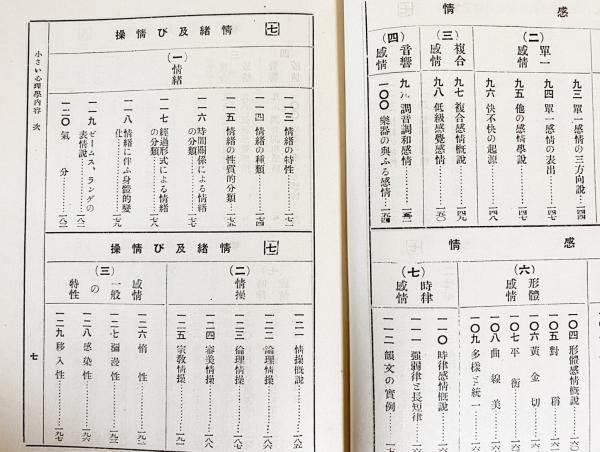 感
情
(二)
單一
感情
九三 單一感情の三方向說……一四四
九四 單一感情の表出……一四五
九五 他の感情學說……一四七
九六 快不快の起源……一四八
(三)
複合
感情
九七 複合感情概說……一四九
九八 低級感覺感情……一五〇
(四)
音響
感情
九九 調音調和感情……一五二
一〇〇 樂器の與ふる感情……一五四
感
情
(六)
形體
感情
一〇四 形體感情概說
一〇五 對稱
一〇六 黃金切
一〇七 平衡
一〇八 曲線美
一〇九 多樣と統一
(七)
時律
感情
一一〇 時律感情概說
一一一 強弱律と長短律
一一二 韻文の實例
七
情緖及び情操
(一)
情緖
一一三 情緖の特性……一七二
一一四 情緖の種類……一七四
一一五 情緖の性質的分類……一七五
一一六 時間關係による情緖
の分類……一七七
一一七 經過形式による情緖
の分類……一七八
一一八 情緖に伴ふ身體的變
化……一七九
一一九 ゼームス、ランゲの
表情說……一八一
一二〇 氣分……一八二
七
情緖及び情操
(二)
情操
一二一 情操槪說……一八五
一二二 論理情操……
一二三 倫理情操……
一二四 審美情操……一八八
一二五 宗敎情操……一九一
(三)
感情
一般
の
特性
一二六 惰性……一九二
一二七 彌漫性……
一二八 感染性……一九六
一二九 移入性……一九七
小さい心理學內容 次
七